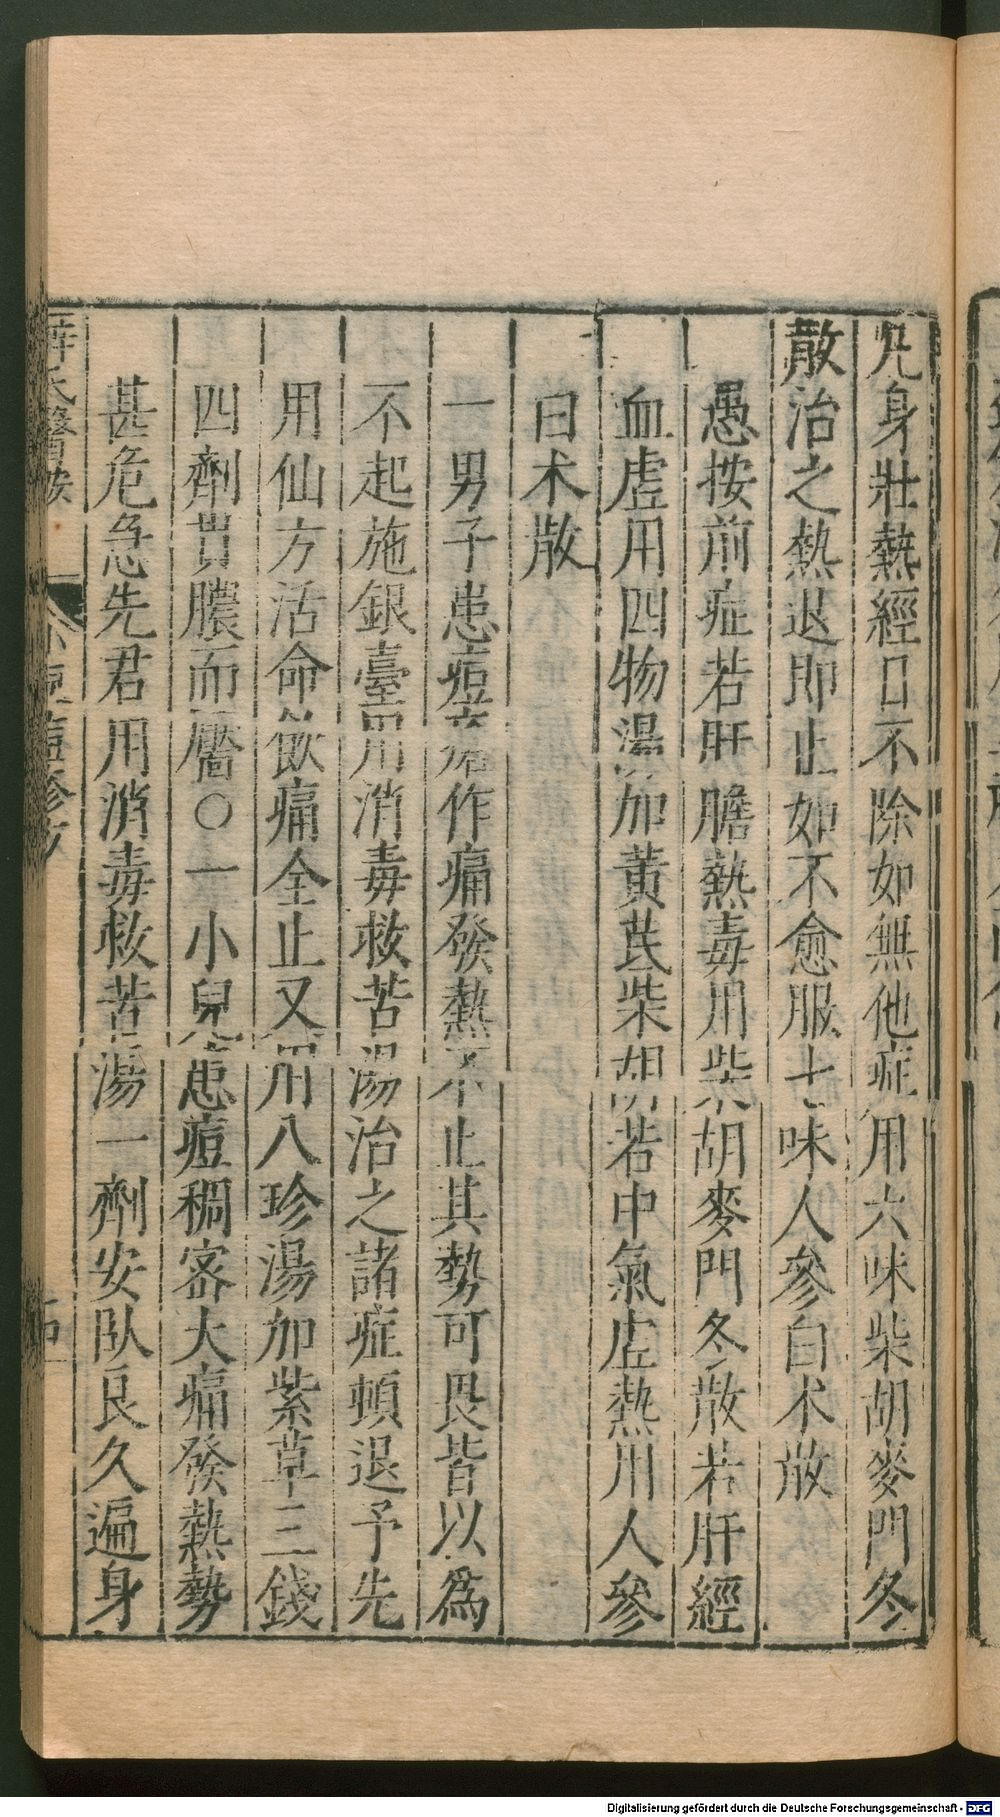 凡身壯熱經日不除如無他症用六味柴胡麥門冬
散治之熱退即止如不愈服七味人參白术散
愚按前症若肝膽熱毒用柴胡麥門冬散若肝經
血虛用四物湯加黃芪柴胡若中氣虛熱用人參
白术散
一男子患痘瘡作痛發熱不止其勢可畏皆以為
不起施銀臺用消毒救苦湯治之諸症頓退予先
用仙方活命飲痛全止又用八珍湯加紫草三錢
四劑貫膿而靨○一小兒患痘稠密大痛發熱勢
甚危急先君用消毒救苦湯一劑安臥良久遍身
薛氏醫按
小兒痘疹方
Digitalisierung gefördert durch die Deutsche Forschungsgemeinschaft - DFG